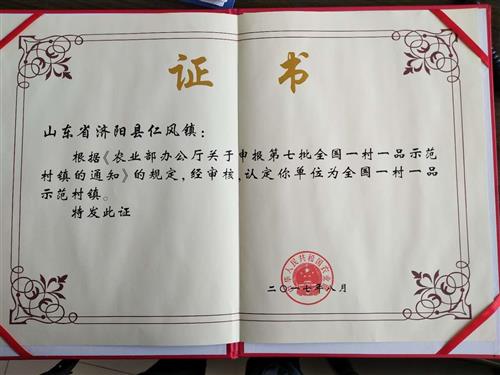 证书
山东省济阳县仁风镇：
根据《农业部办公厅关于申报第七批全国一村一品示范
村镇的通知》的规定，经审核，认定你单位为全国一村一品
示范村镇。
特发此证
中华人民共和国农业部
二〇一七年八月